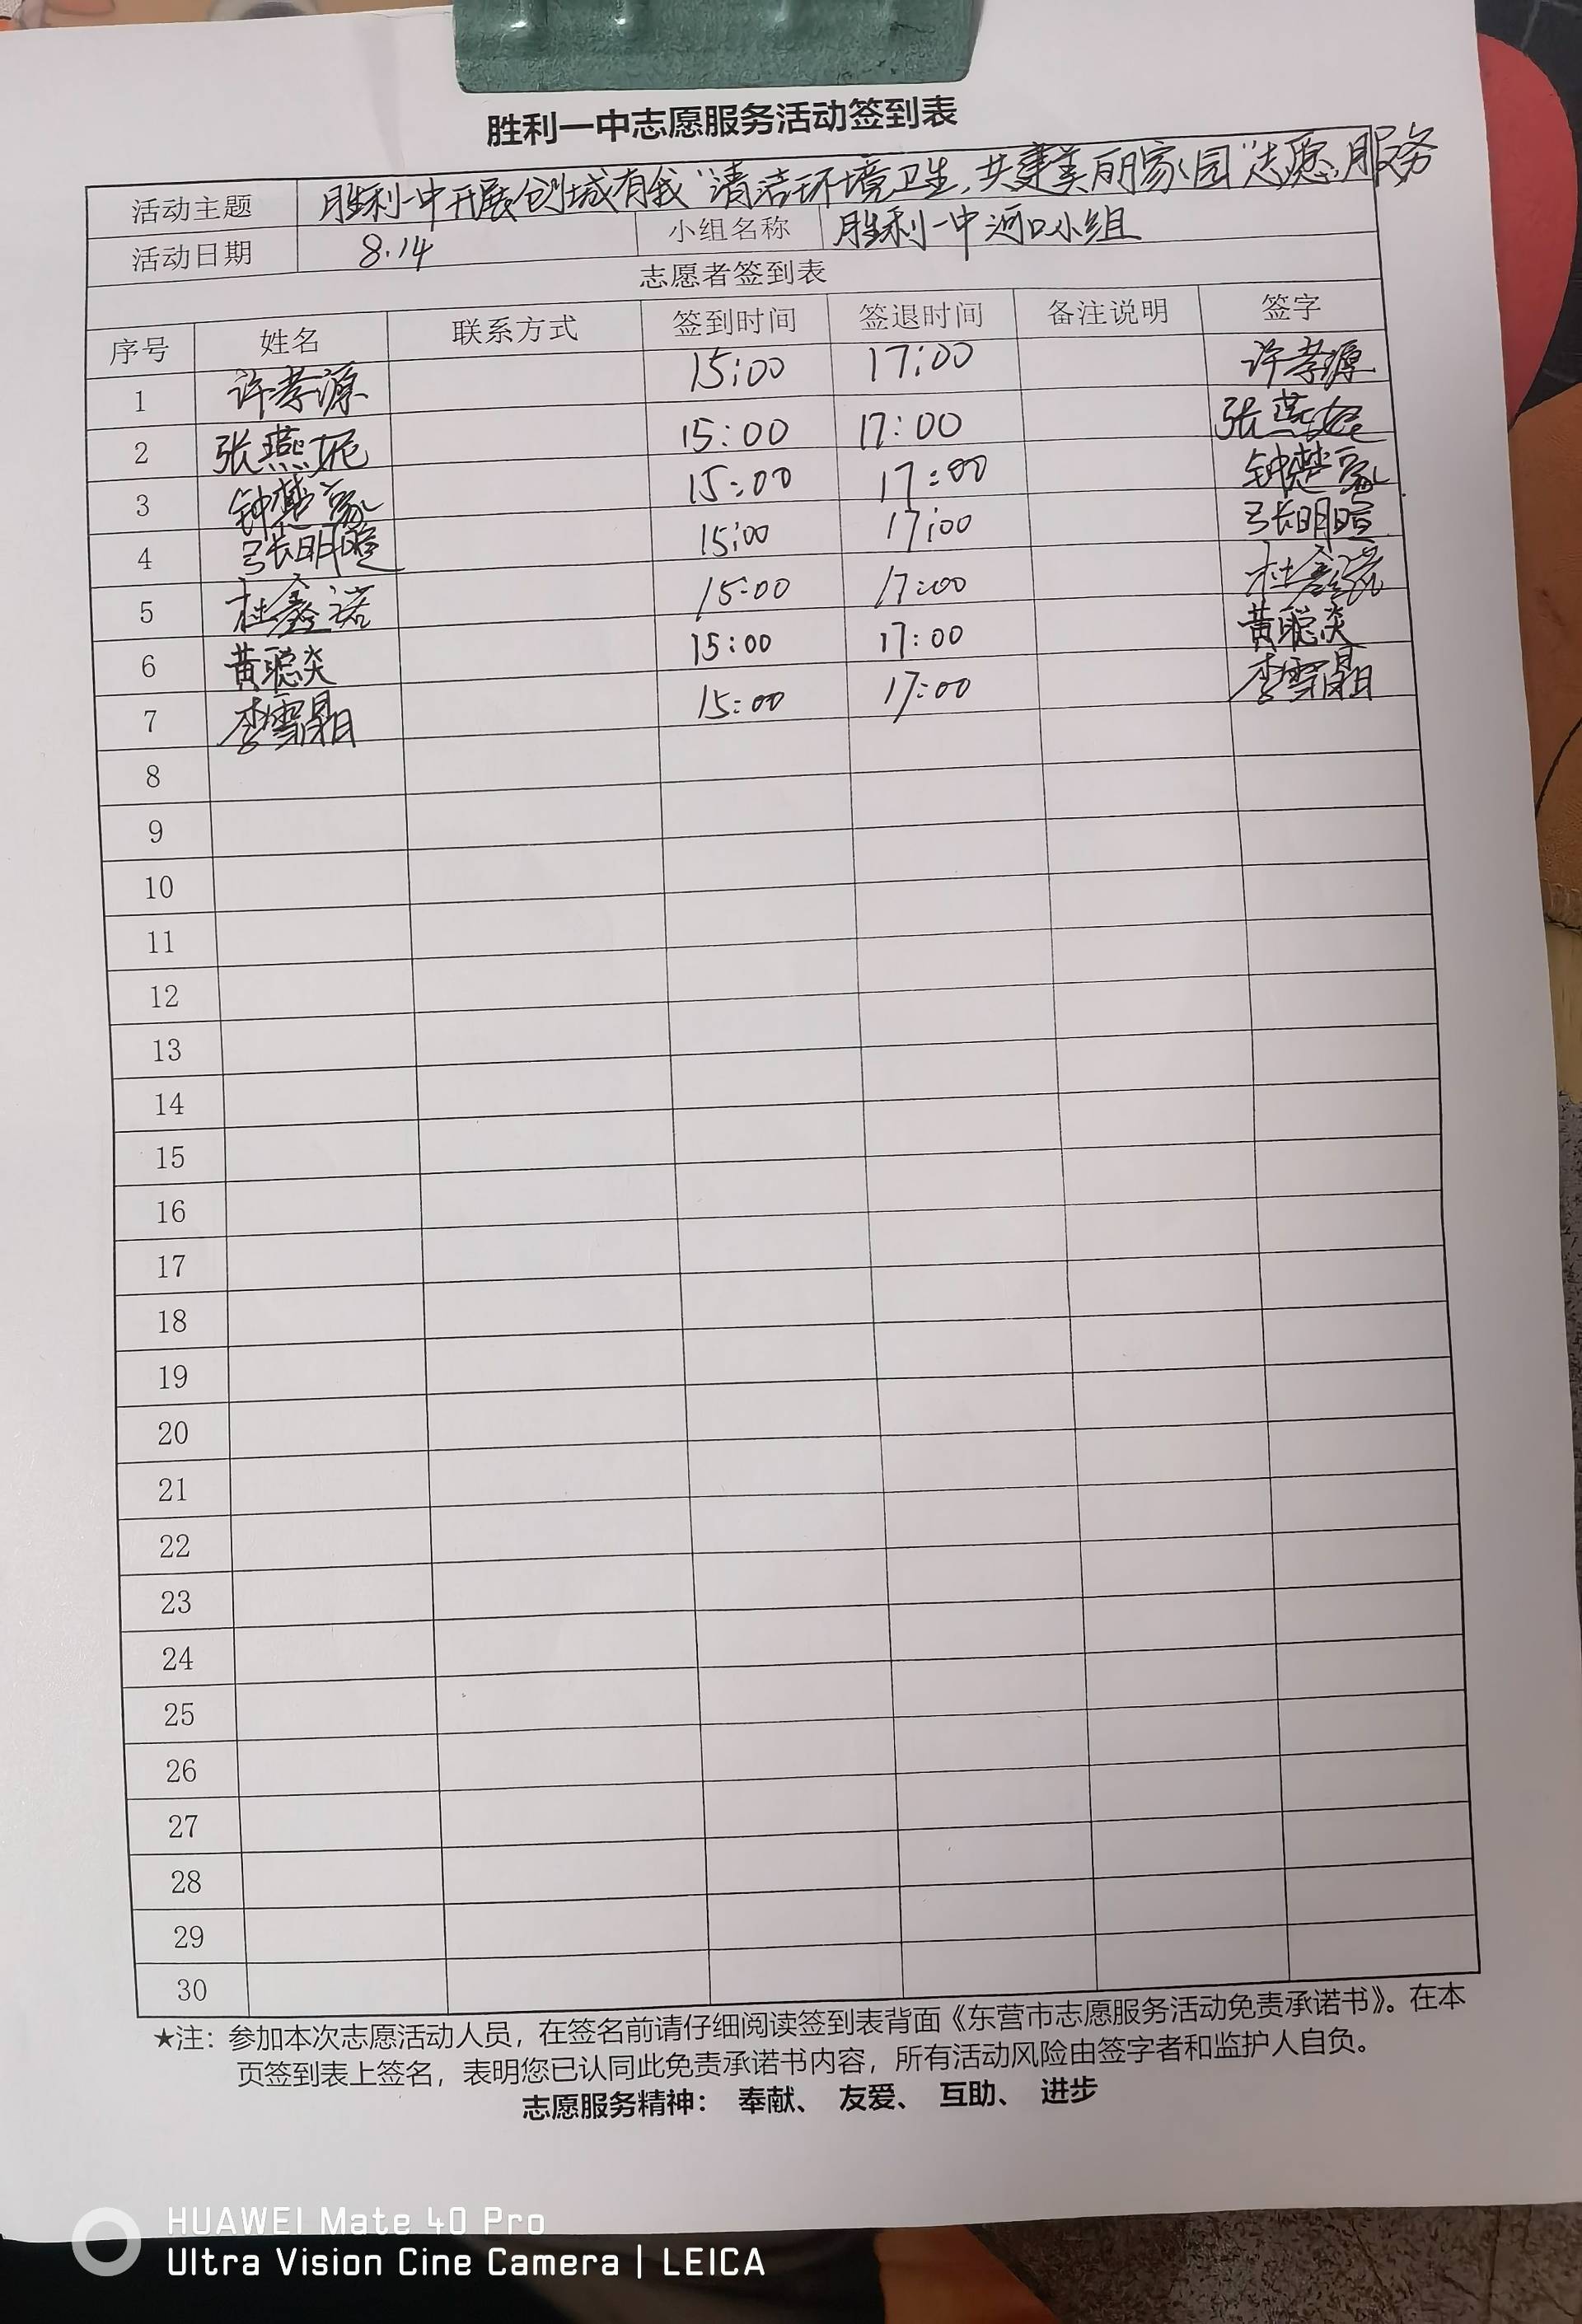 胜利一中志愿服务活动签到表
活动主题 胜利一中开展创城有我“清洁环境卫生,共建美丽家园”志愿服务
活动日期 8.14 小组名称 胜利一中河口小组
志愿者签到表
序号 姓名 联系方式 签到时间 签退时间 备注说明 签字
1 许孝源 15:00 17:00 许孝源
2 张燕妮 15:00 17:00 张燕妮
3 钟楚豪 15:00 17:00 钟楚豪
4 张明暄 15:00 17:00 张明暄
5 杜鑫诺 15:00 17:00 杜鑫诺
6 黄聪炎 15:00 17:00 黄聪炎
7 李雪晶 15:00 17:00 李雪晶
8
9
10
11
12
13
14
15
16
17
18
19
20
21
22
23
24
25
26
27
28
29
30
★注:参加本次志愿活动人员,在签名前请仔细阅读签到表背面《东营市志愿服务活动免责承诺书》。在本
页签到表上签名,表明您已认同此免责承诺书内容,所有活动风险由签字者和监护人自负。
志愿服务精神: 奉献、 友爱、 互助、 进步
HUAWEI Mate 40 Pro
Ultra Vision Cine Camera | LEICA